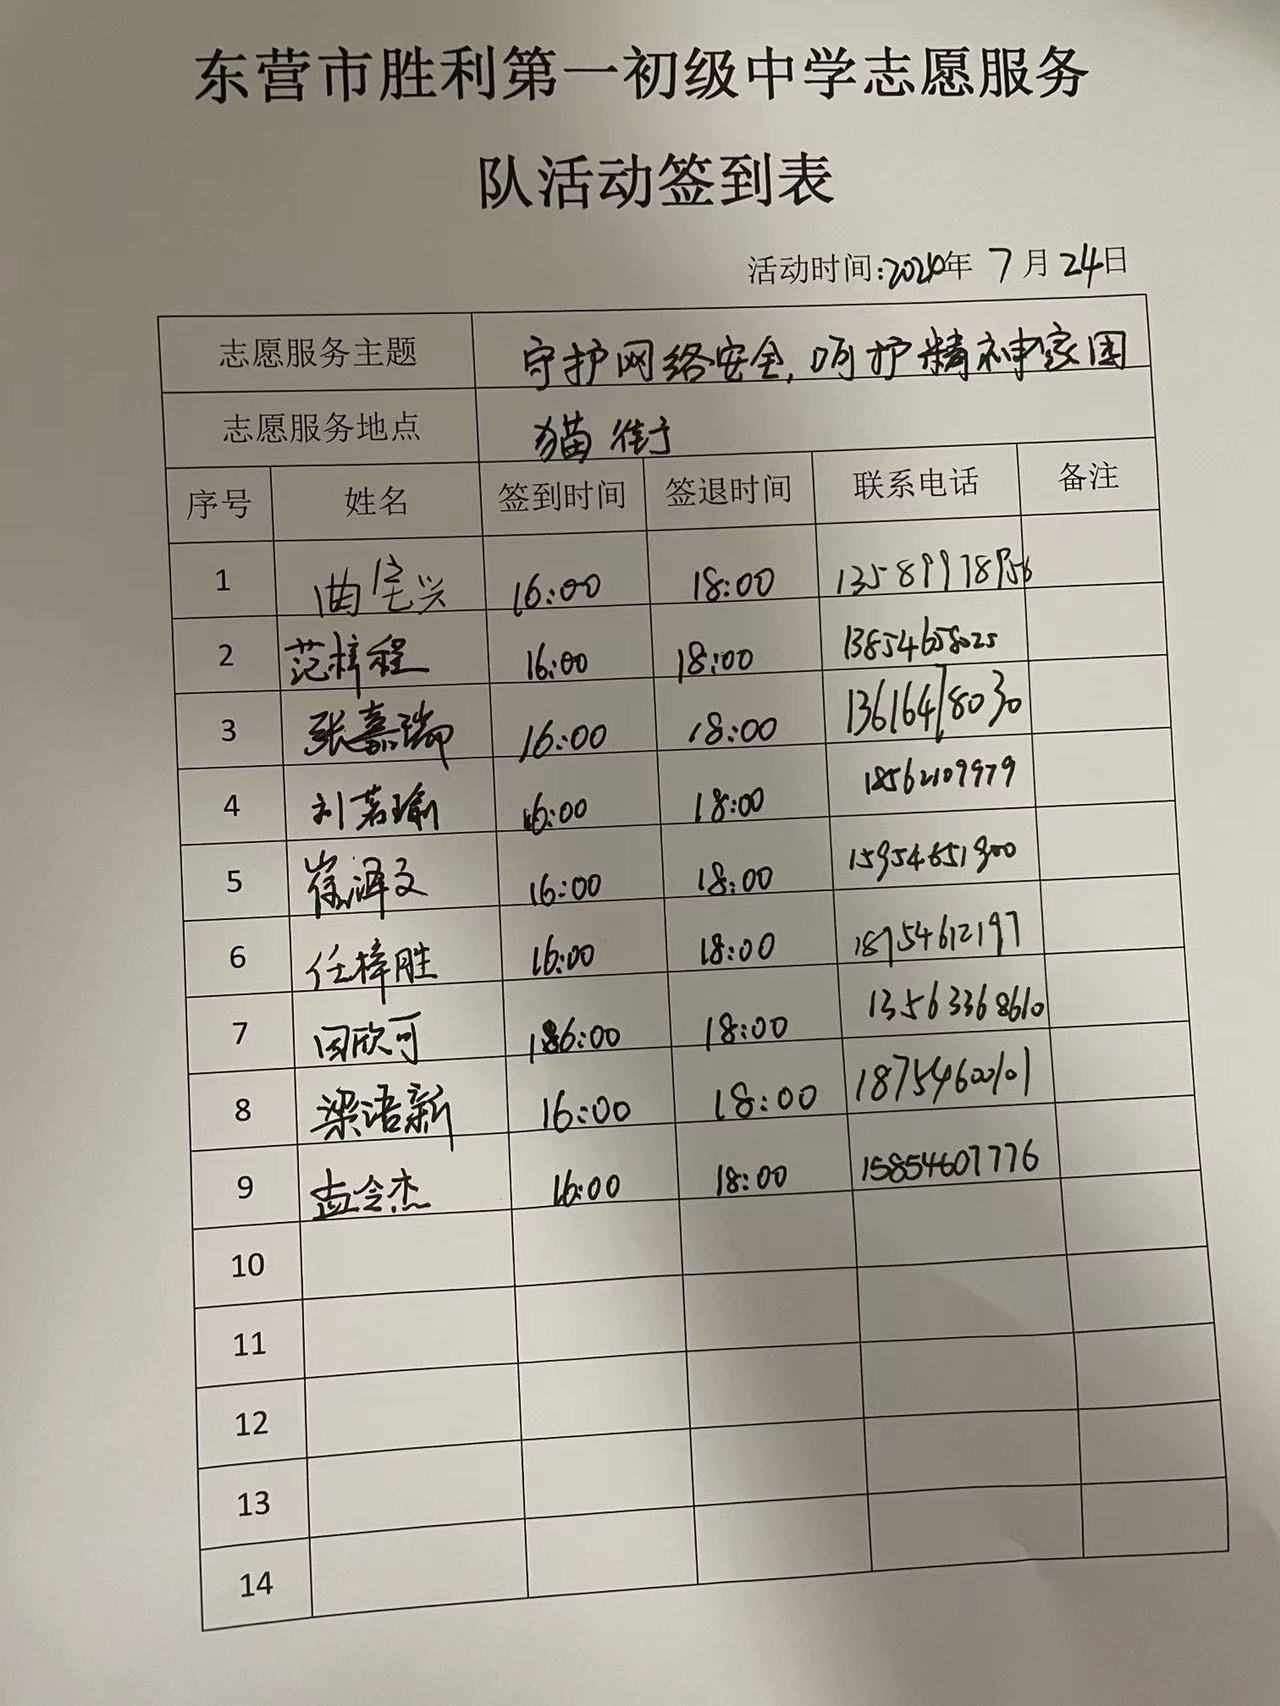 东营市胜利第一初级中学志愿服务
队活动签到表
活动时间:2024年 7月24日
志愿服务主题 守护网络安全,呵护精神家园
志愿服务地点 猫街
序号 姓名 签到时间 签退时间 联系电话 备注
1 曲宝兴 16:00 18:00
2 范梓程 16:00 18:00 13854658025
3 张嘉瑞 16:00 18:00 13616478030
4 刘茗瑜 16:00 18:00 18562109979
5 崔泽文 16:00 18:00 15954651900
6 任梓胜 16:00 18:00 18754612197
7 闫欣可 16:00 18:00 13563368610
8 梁语新 16:00 18:00 18754600101
9 孟令杰 16:00 18:00 15854607776
10
11
12
13
14